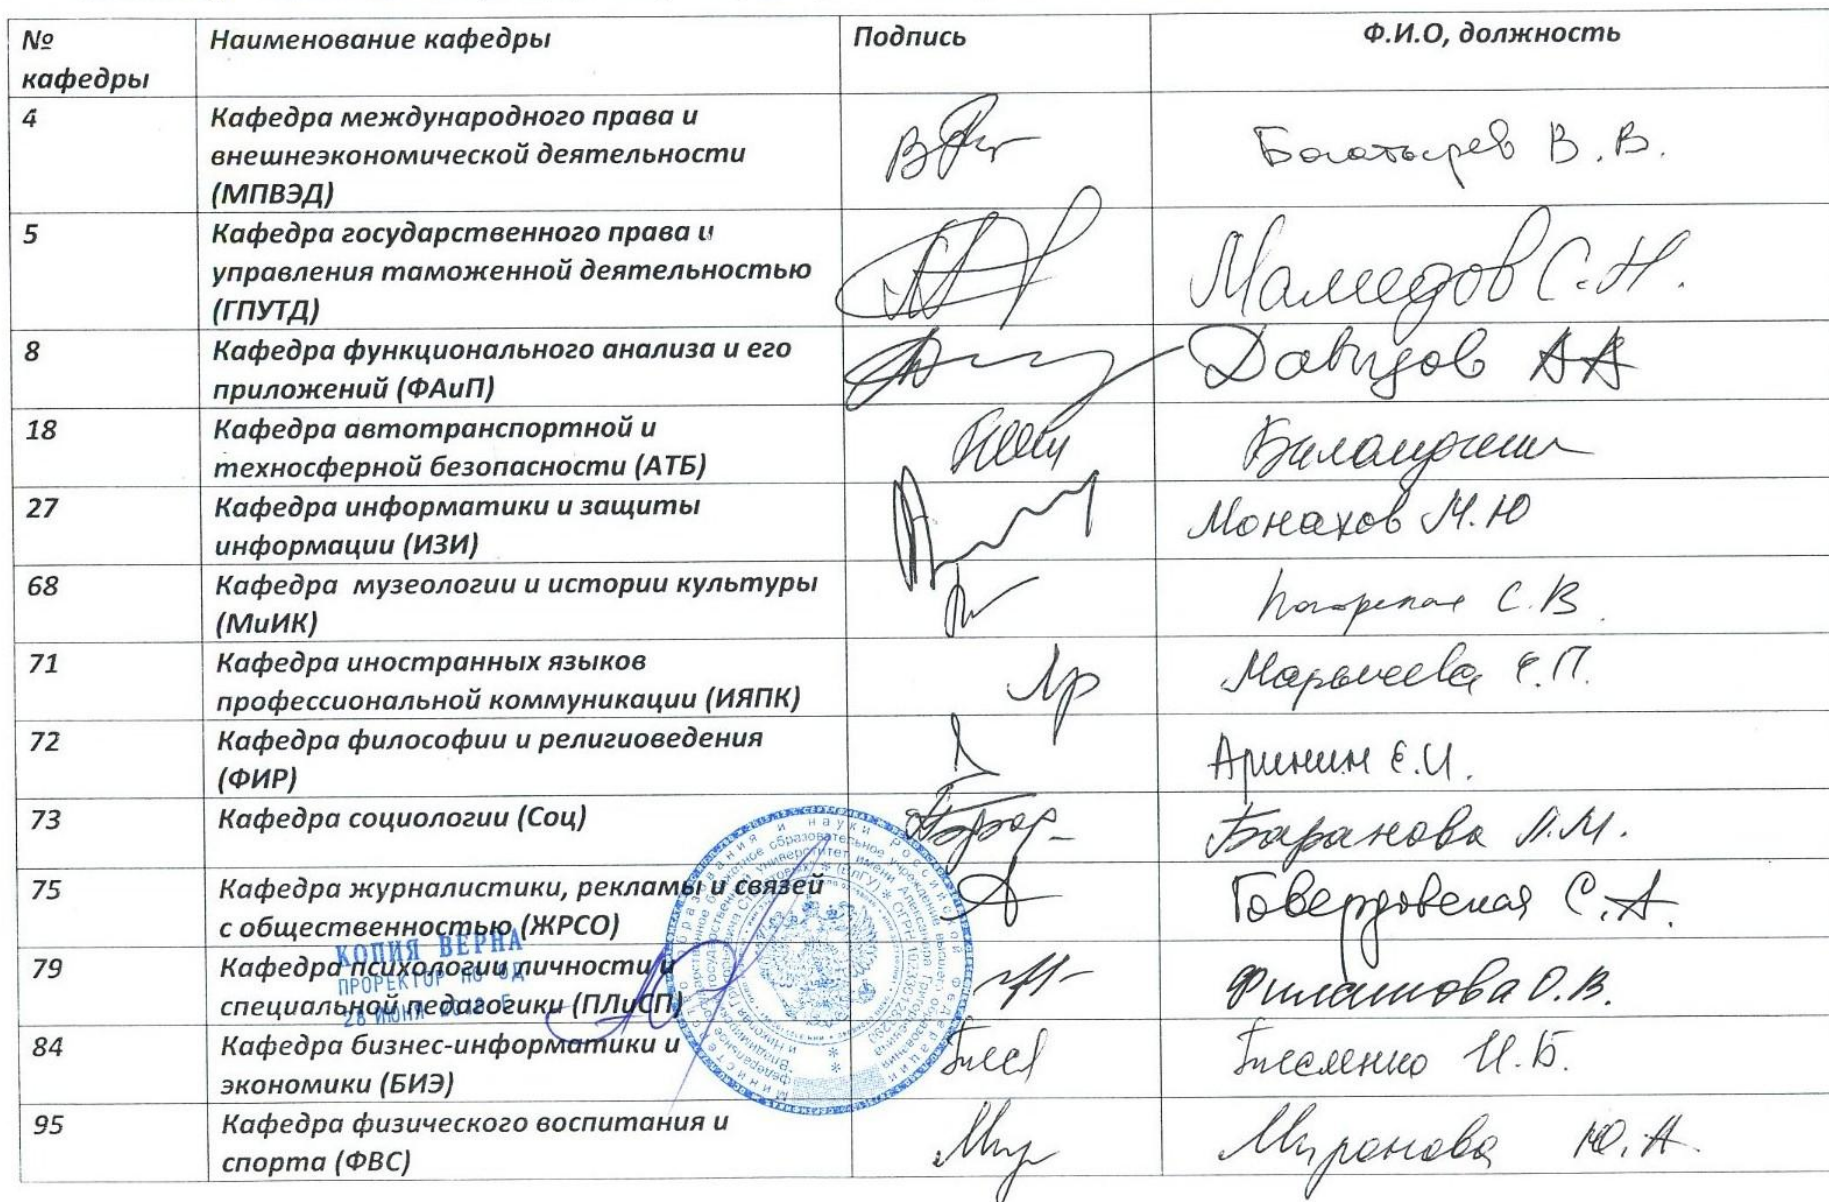 № кафедры
Наименование кафедры
Подпись
Ф.И.О, должность
4
Кафедра международного права и
внешнеэкономической деятельности
(МПВЭД)
Богатырев В.В.
5
Кафедра государственного права и
управления таможенной деятельностью
(ГПУТД)
Мамедов С.Н.
8
Кафедра функционального анализа и его
приложений (ФАиП)
Давыдов АА
18
Кафедра автотранспортной и
техносферной безопасности (АТБ)
27
Кафедра информатики и защиты
информации (ИЗИ)
Монахов М.Ю
68
Кафедра музеологии и истории культуры
(МиИК)
С.В
71
Кафедра иностранных языков
профессиональной коммуникации (ИЯПК)
Марычева Е.П.
72
Кафедра философии и религиоведения
(ФИР)
Аринин Е.И.
73
Кафедра социологии (Соц)
Баранова
75
Кафедра журналистики, рекламы и связей
с общественностью (ЖРСО)
Говердовская С.А.
79
Кафедра психологии личности и
специальной педагогики (ПЛиСП)
Филатова О.В.
КОПИЯ ВЕРНА
ПРОРЕКТОР ПО ОД
84
Кафедра бизнес-информатики и
экономики (БИЭ)
Тесленко И.Б.
95
Кафедра физического воспитания и
спорта (ФВС)
Миронова Ю.А.